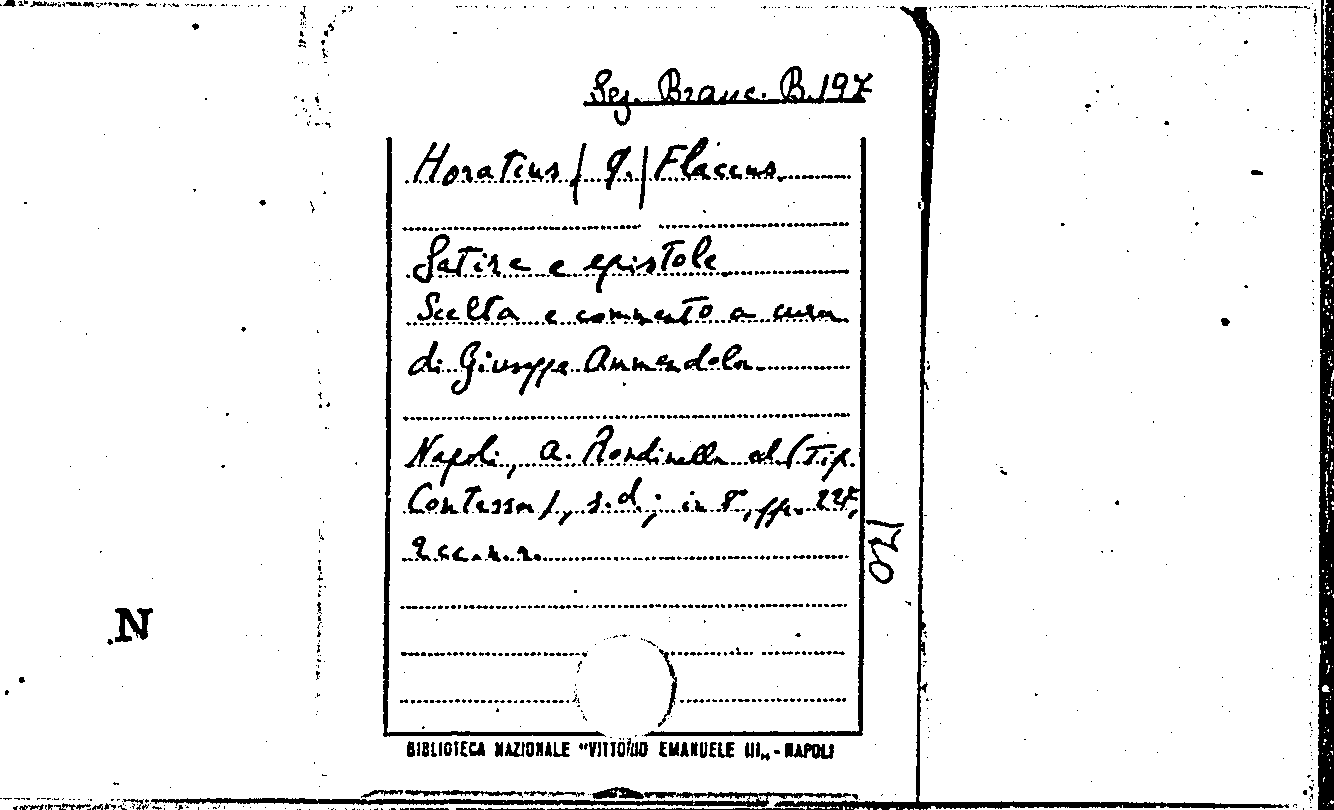 Sez. Branc. B.197
Horatius / Q. / Flaccus
Satire e epistole
Scelta e commento a cura
di Giuseppe Ammendola
Napoli, A. Rondinella ed. (Tip.
Contessa), s.d.; in 8°, pp. 227,
2 cc.n.n.
170
N
BIBLIOTECA NAZIONALE "VITTORIO EMANUELE III„ - NAPOLI